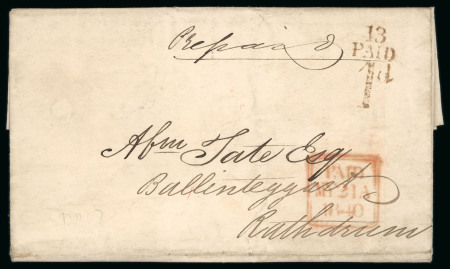 Prepaid
13
PAID
1d
Abm Tate Esq
Ballinteggart
Rathdrum
PAID
21 A
1840